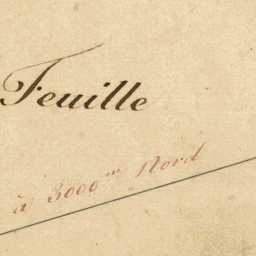 Feuille
à 3000m Nord